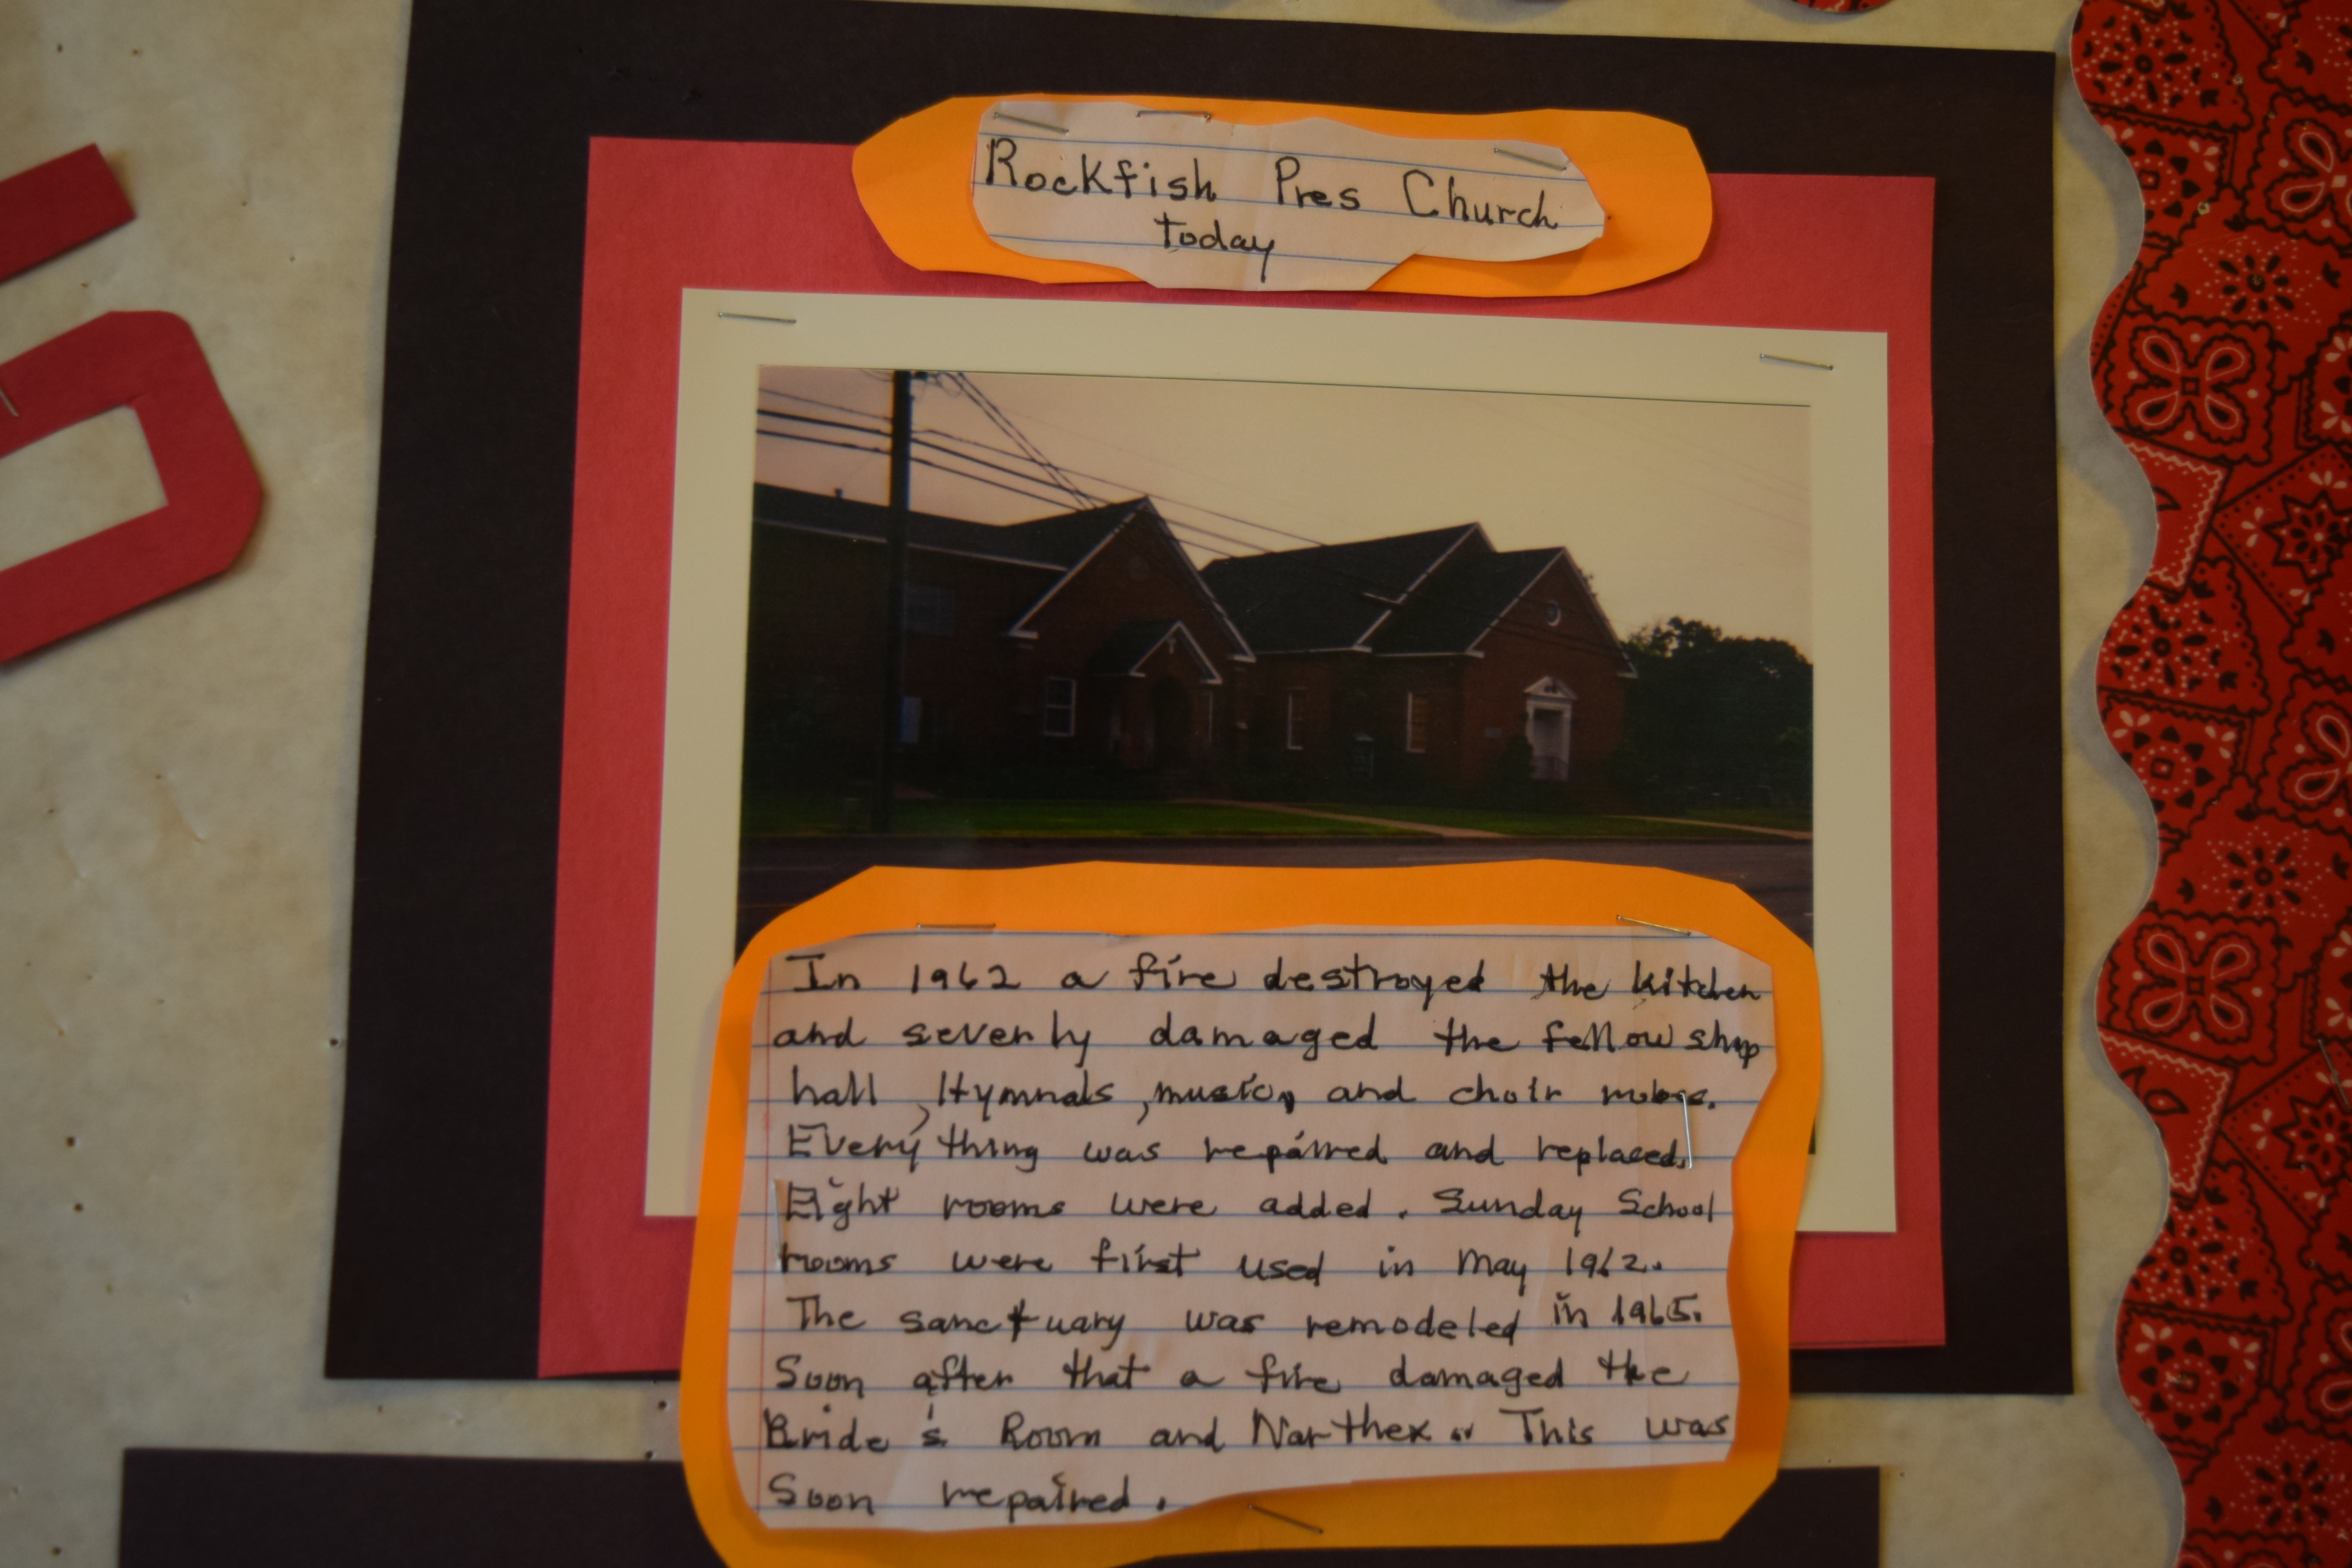 Rockfish Pres Church
today
In 1962 a fire destroyed the kitchen
and severly damaged the fellowship
hall, Hymnals, music, and choir robes.
Everything was repaired and replaced.
Eight rooms were added. Sunday School
rooms were first used in May 1962.
The sanctuary was remodeled in 1965.
Soon after that a fire damaged the
Bride's Room and Narthex. This was
soon repaired.